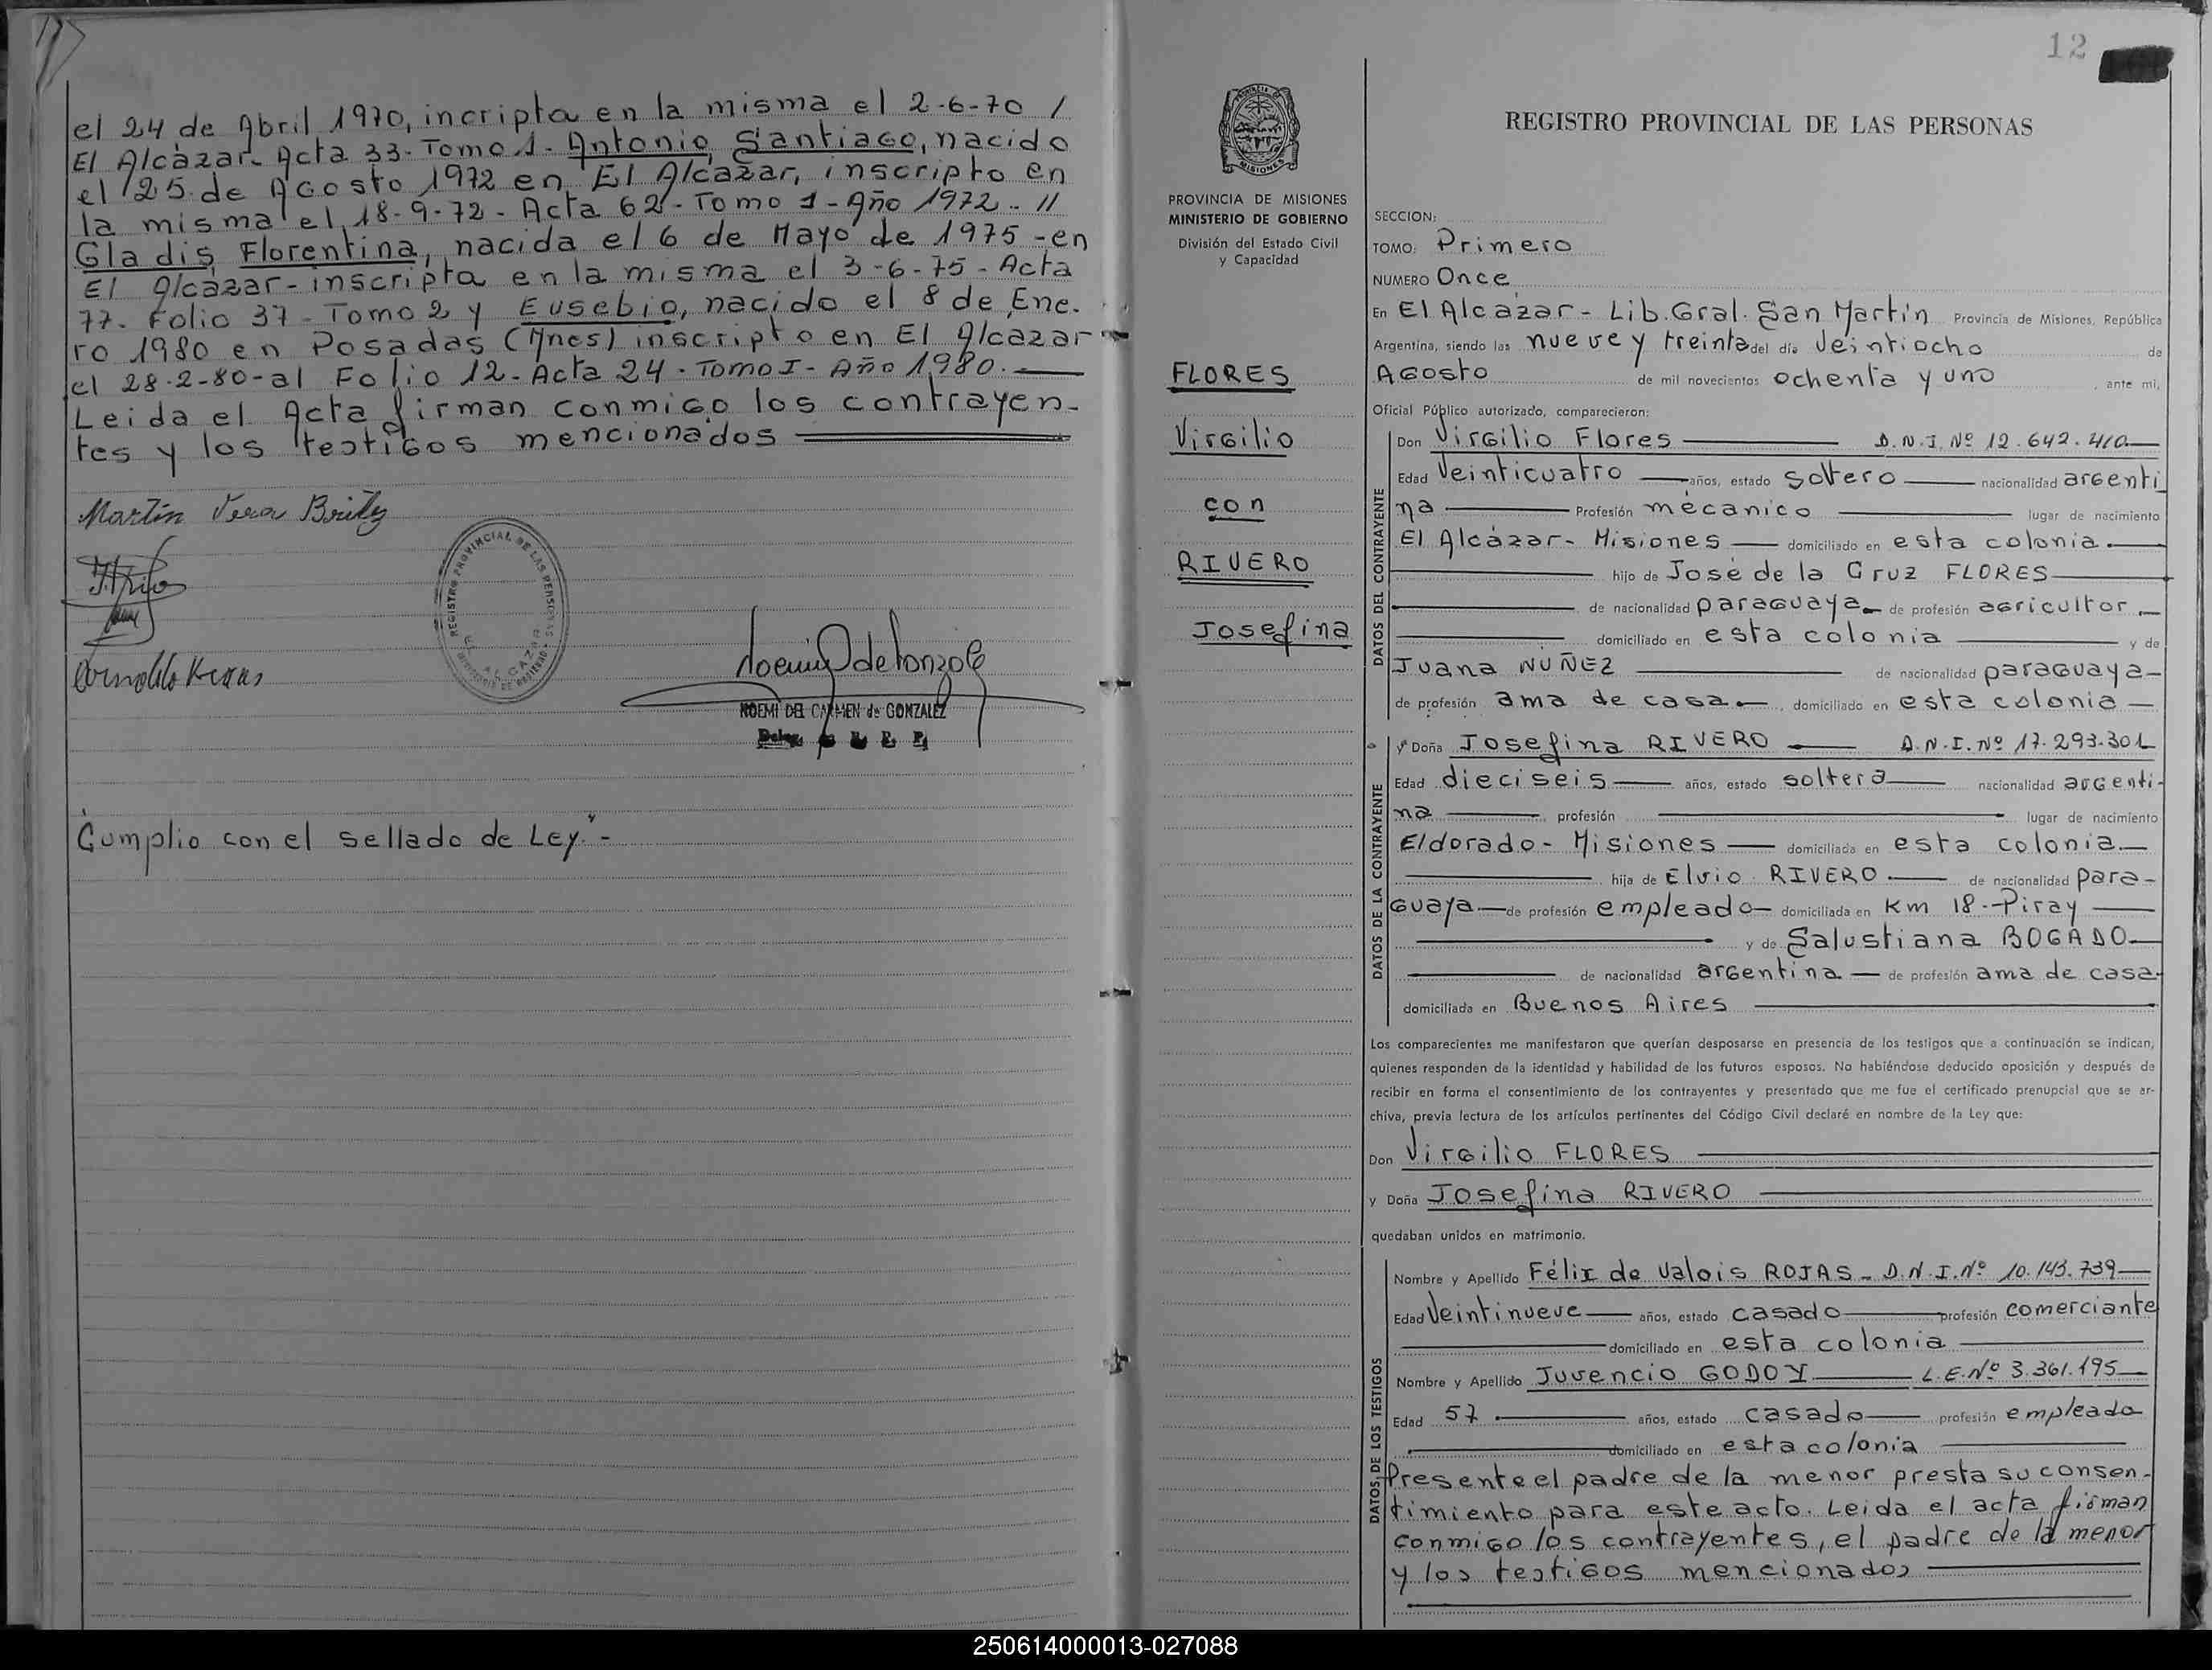 el 24 de Abril 1970, incripta en la misma el 2-6-70 /
El Alcázar. Acta 33. Tomo 1. Antonio Santiago, nacido
el 25 de Agosto 1972 en El Alcazar, inscripto en
la misma el 18-9-72 - Acta 62 - Tomo 1 - Año 1972 - //
Gladis Florentina, nacida el 6 de Mayo de 1975 - en
El Alcázar - inscripta en la misma el 3-6-75 - Acta
77. Folio 37 - Tomo 2 y Eusebio, nacido el 8 de Ene.
ro 1980 en Posadas (Mnes) inscripto en El Alcazar
el 28-2-80 - al Folio 12 - Acta 24 - Tomo I - Año 1980.
Leida el Acta firman conmigo los contrayen-
tes y los testigos mencionados
Martin Vera
REGISTRO PROVINCIAL DE LAS PERSONAS
NOEMI DEL CARMEN de GONZALEZ
Cumplio con el sellado de Ley. -
12
PROVINCIA DE MISIONES
MINISTERIO DE GOBIERNO
División del Estado Civil
y Capacidad
FLORES
Virgilio
con
RIVERO
Josefina
REGISTRO PROVINCIAL DE LAS PERSONAS
SECCION:
TOMO: Primero
NUMERO Once
En El Alcázar - Lib. Gral. San Martín Provincia de Misiones, República
Argentina, siendo las nueve y treinta del día Veintiocho de
Agosto de mil novecientos ochenta y uno, ante mí,
Oficial Público autorizado, comparecieron:
DATOS DEL CONTRAYENTE
Don Virgilio Flores D.N.I. Nº 12.642.410
Edad Veinticuatro años, estado soltero nacionalidad argenti
na Profesión mecanico lugar de nacimiento
El Alcázar - Misiones domiciliado en esta colonia.
hijo de José de la Cruz FLORES
de nacionalidad paraguaya de profesión agricultor
domiciliado en esta colonia y de
Juana NUÑEZ de nacionalidad paraguaya
de profesión ama de casa, domiciliado en esta colonia
DATOS DE LA CONTRAYENTE
y Doña Josefina RIVERO D.N.I. Nº 17.293.301
Edad dieciseis años, estado soltera nacionalidad argenti-
na profesión lugar de nacimiento
Eldorado - Misiones domiciliada en esta colonia
hija de Elvio RIVERO de nacionalidad para-
guaya de profesión empleado domiciliada en Km 18 - Piray
y de Salustiana BOGADO
de nacionalidad argentina de profesión ama de casa
domiciliada en Buenos Aires
Los comparecientes me manifestaron que querían desposarse en presencia de los testigos que a continuación se indican,
quienes responden de la identidad y habilidad de los futuros esposos. No habiéndose deducido oposición y después de
recibir en forma el consentimiento de los contrayentes y presentado que me fue el certificado prenupcial que se ar-
chiva, previa lectura de los artículos pertinentes del Código Civil declaré en nombre de la Ley que:
Don Virgilio FLORES
y Doña Josefina RIVERO
quedaban unidos en matrimonio.
DATOS DE LOS TESTIGOS
Nombre y Apellido Félix de Valois ROJAS - D.N.I. Nº 10.143.739
Edad Veintinueve años, estado casado profesión comerciante
domiciliado en esta colonia
Nombre y Apellido Juvencio GODOY L.E. Nº 3.361.195
Edad 57 años, estado casado profesión empleado
domiciliado en esta colonia
Presente el padre de la menor presta su consen-
timiento para este acto. Leida el acta firman
conmigo los contrayentes, el padre de la menor
y los testigos mencionados
250614000013-027088